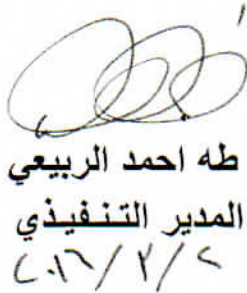 طه احمد الربيعي
المدير التنفيذي
٢٠١٦/٢/٢